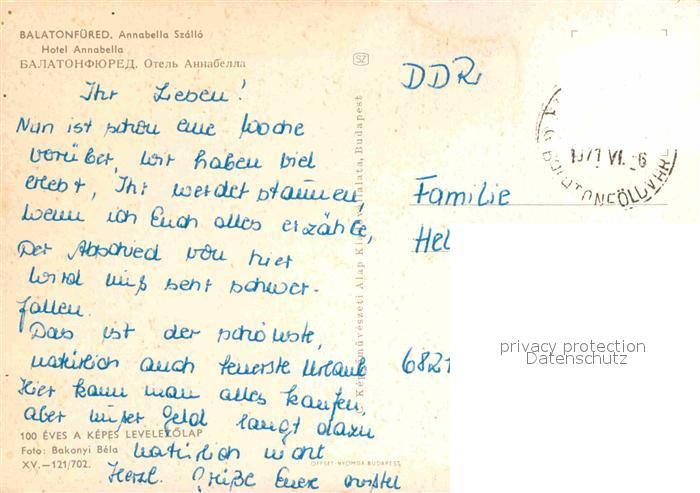 BALATONFÜRED. Annabella Szálló
Hotel Annabella
БАЛАТОНФЮРЕД. Отель Аннабелла
Ihr Lieben!
Nun ist schon eine Woche
vorüber, wir haben viel
erlebt, Ihr werdet staunen
wenn ich Euch alles erzähle,
Der Abschied von hier
wird uns sehr schwer-
fallen.
Das ist der schönste,
natürlich auch teuerste Urlaub
Hier kann man alles kaufen,
aber unser Geld langt dazu
natürlich nicht
Herzl. Grüße Euer
100 ÉVES A KÉPES LEVELEZŐLAP
Foto: Bakonyi Béla
XV.—121/702.
OFFSET NYOMDA BUDAPEST
© Képzőművészeti Alap Kiadóvállalata, Budapest
SZ
DDR
1971 VI. 6
BALATONFÖLDVÁR
Familie
Hel
6821
privacy protection
Datenschutz